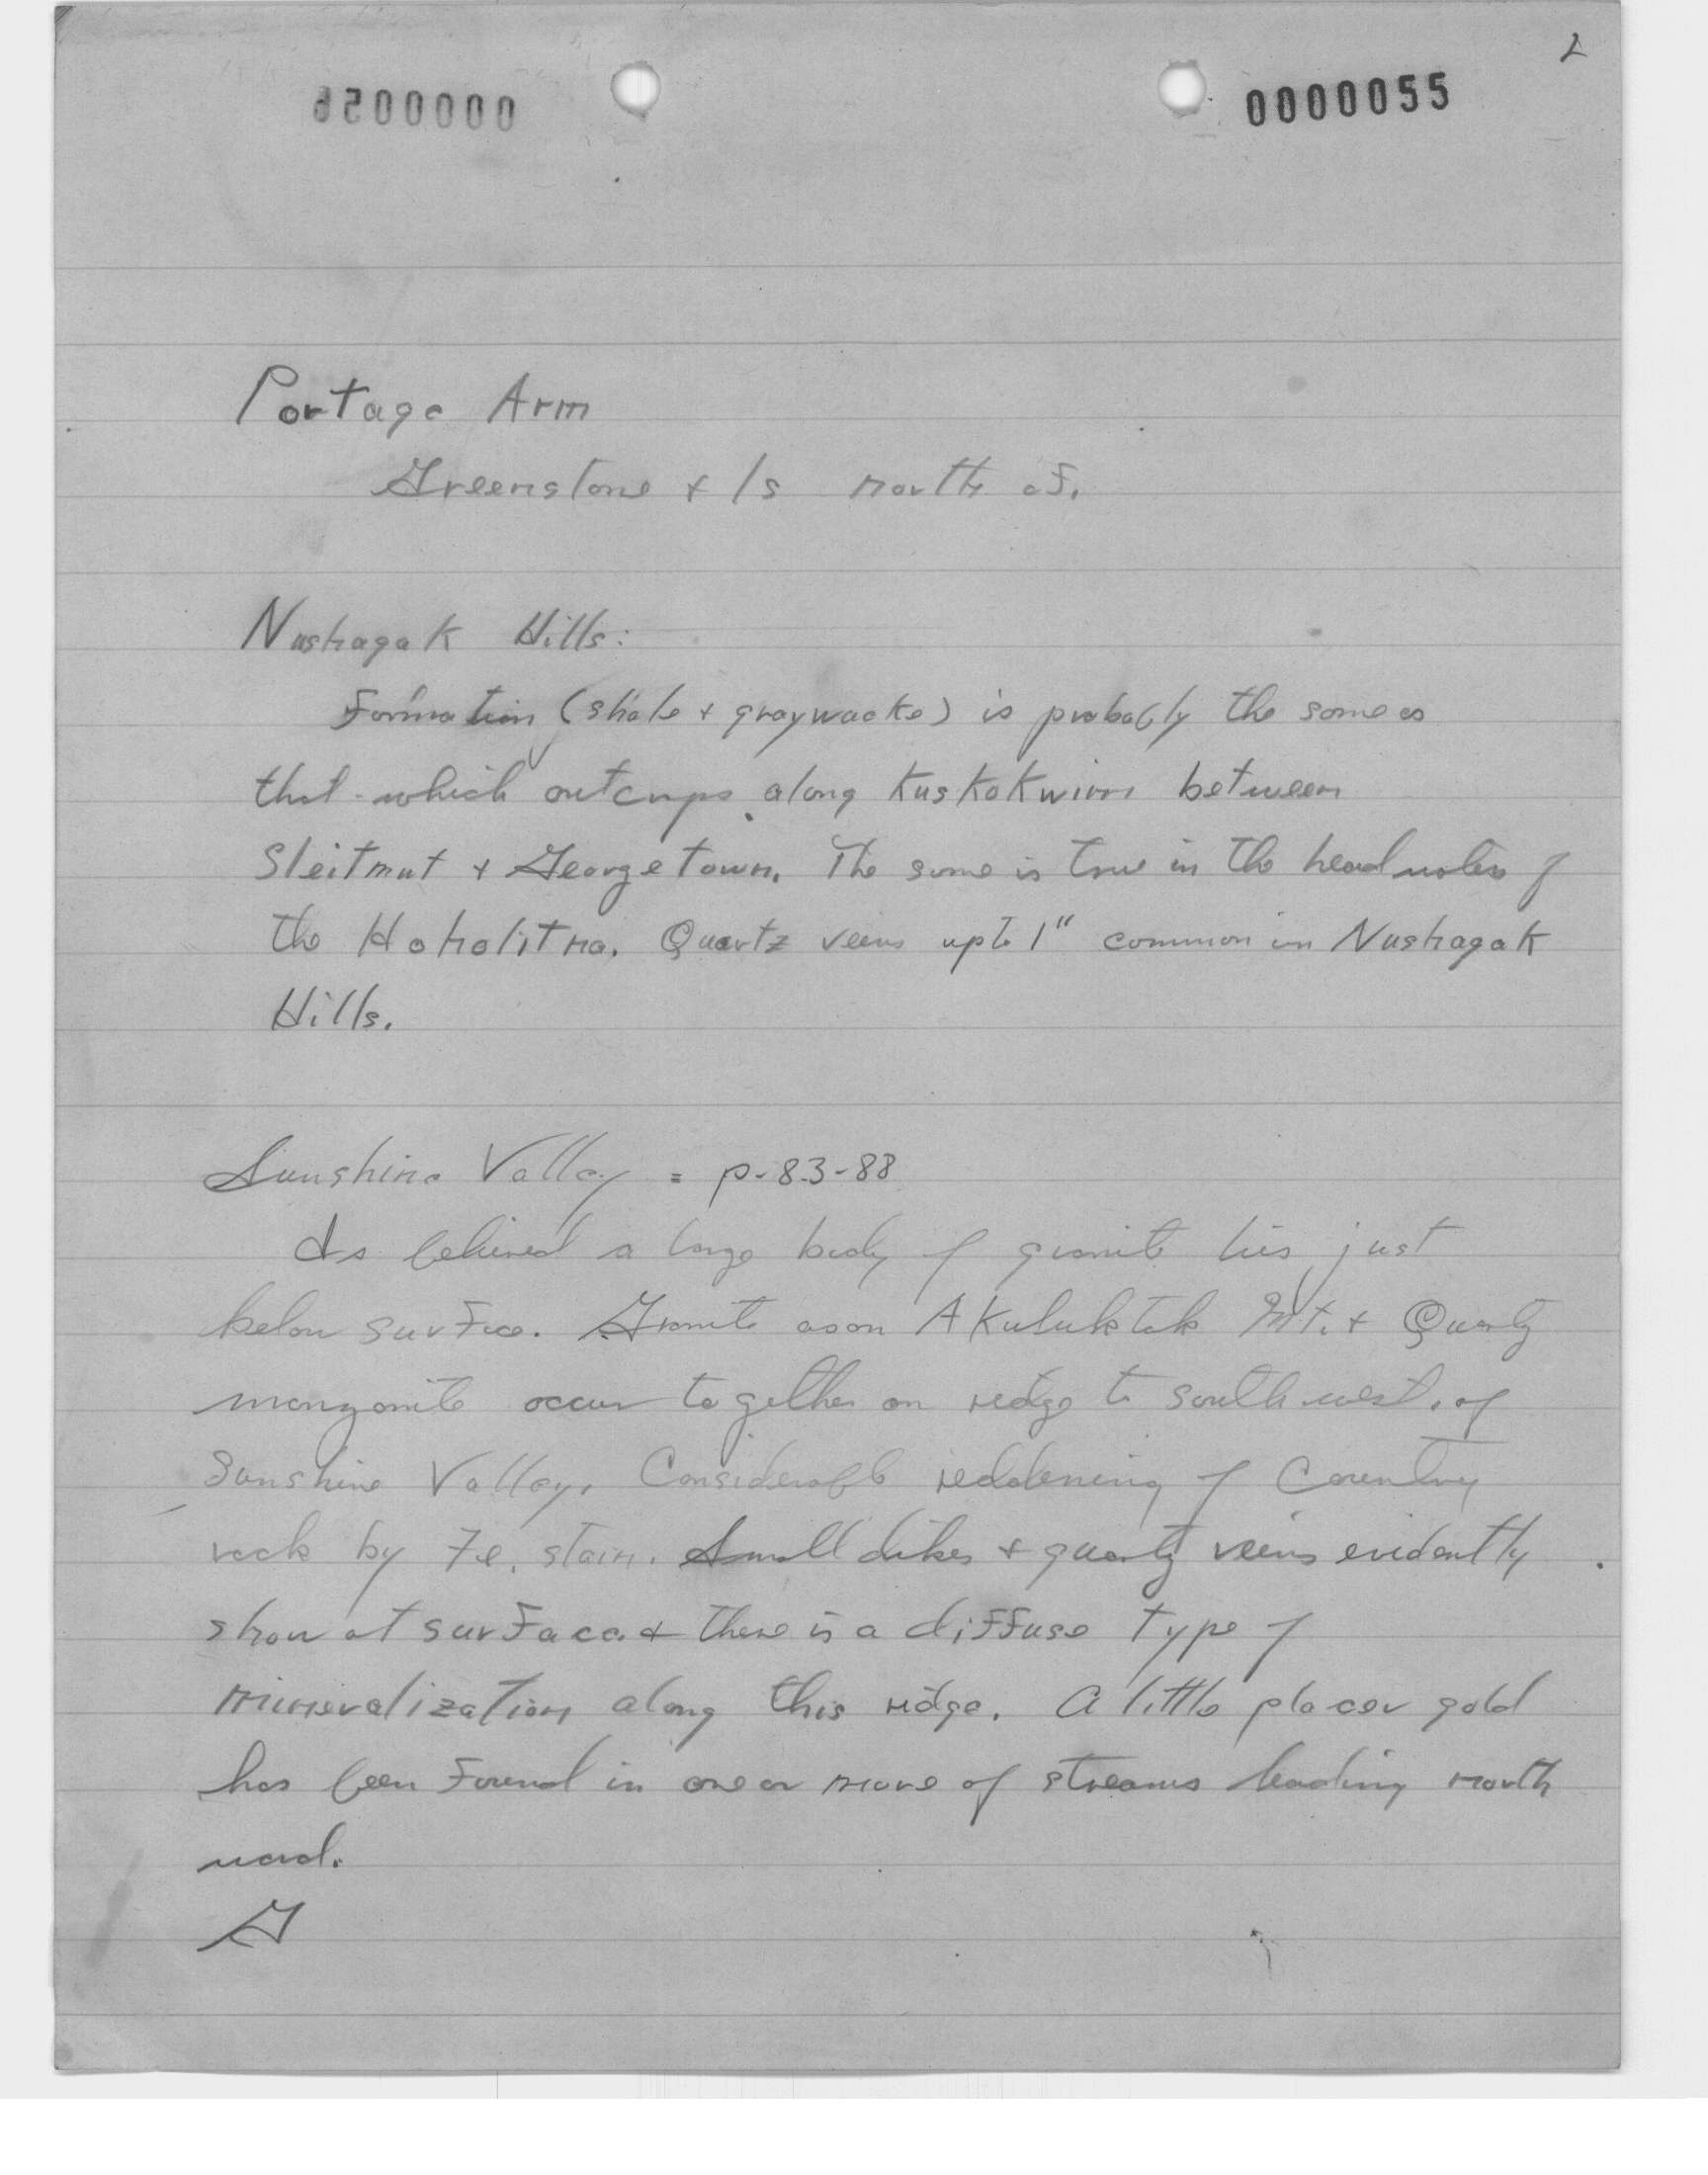 2
0000055
Portage Arm
Greenstone + ls north of.
Nushagak Hills:
Formation (shale + graywacke) is probably the same as
that which outcrops along Kuskokwim between
Sleitmut + Georgetown. The same is true in the headwaters of
the Hoholitna. Quartz veins up to 1" common in Nushagak
Hills.
Sunshine Valley = p-83-88
Is believed a large body of granite lies just
below surface. Granite as on Akuluktak Mt. + Quartz
monzonite occur together on ridge to southwest. of
Sunshine Valley. Considerable reddening of Country
rock by Fe. stain. Small dikes + quartz veins evidently
show at surface. + there is a diffuse type of
mineralization along this ridge. A little placer gold
has been found in one or more of streams leading north
ward.
G